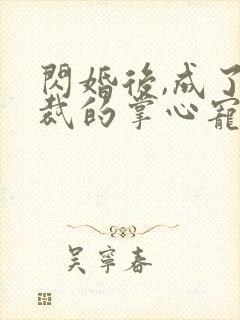 閃婚後,成了
裁的掌心寵
吳寧春